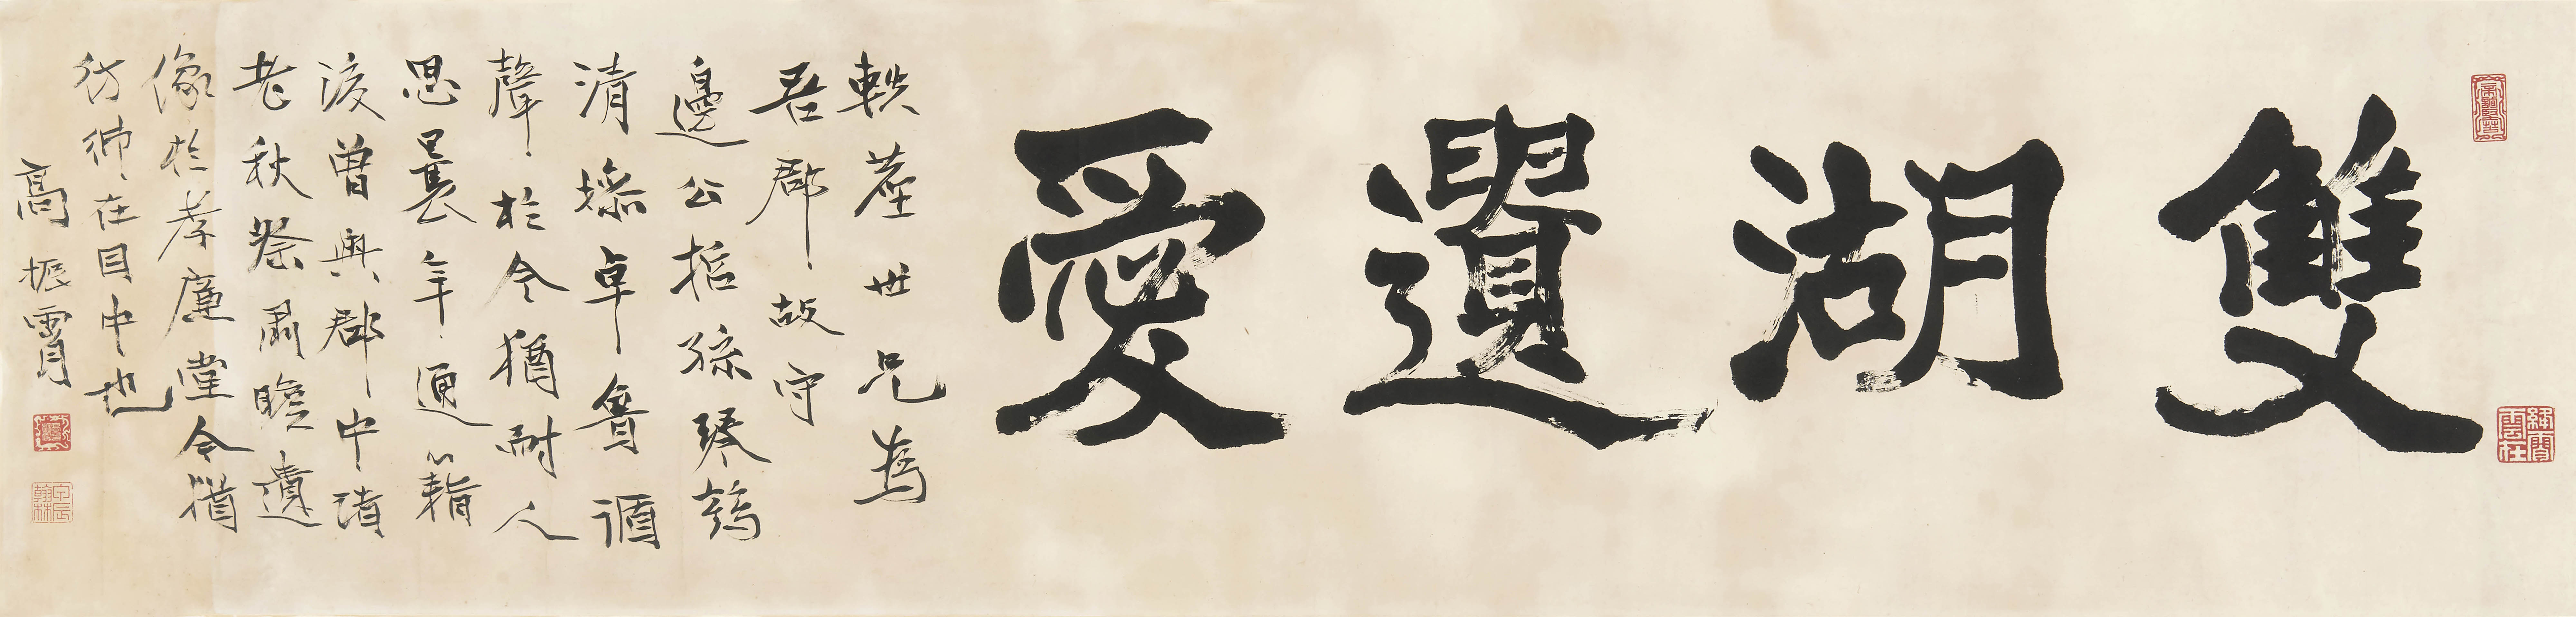 雙湖遺愛
軼塵世兄為
吾郡故守
邊公孫琴鶴
清操卓魯循
聲於今猶耐人
思曩年通籍
後曾與郡中諸
老秋祭肅瞻遺
像於孝廉堂今猶
彷彿在目中也
高振霄